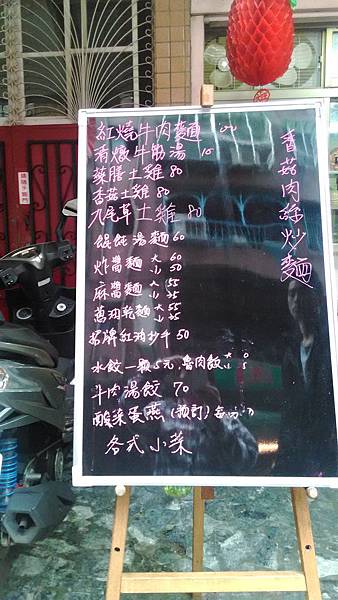 紅燒牛肉麵
清燉牛筋湯
藥膳土雞 80
香菇土雞 80
九尾草土雞 80
餛飩湯麵 60
炸醬麵 大 60 小 50
麻醬麵 大 55 小
蔥油乾麵 大 55 小
招牌紅油抄手 50
水餃一顆5元,魯肉飯 大 小
牛肉湯餃 70
酸菜 (預訂)
各式小菜
香菇肉絲炒麵